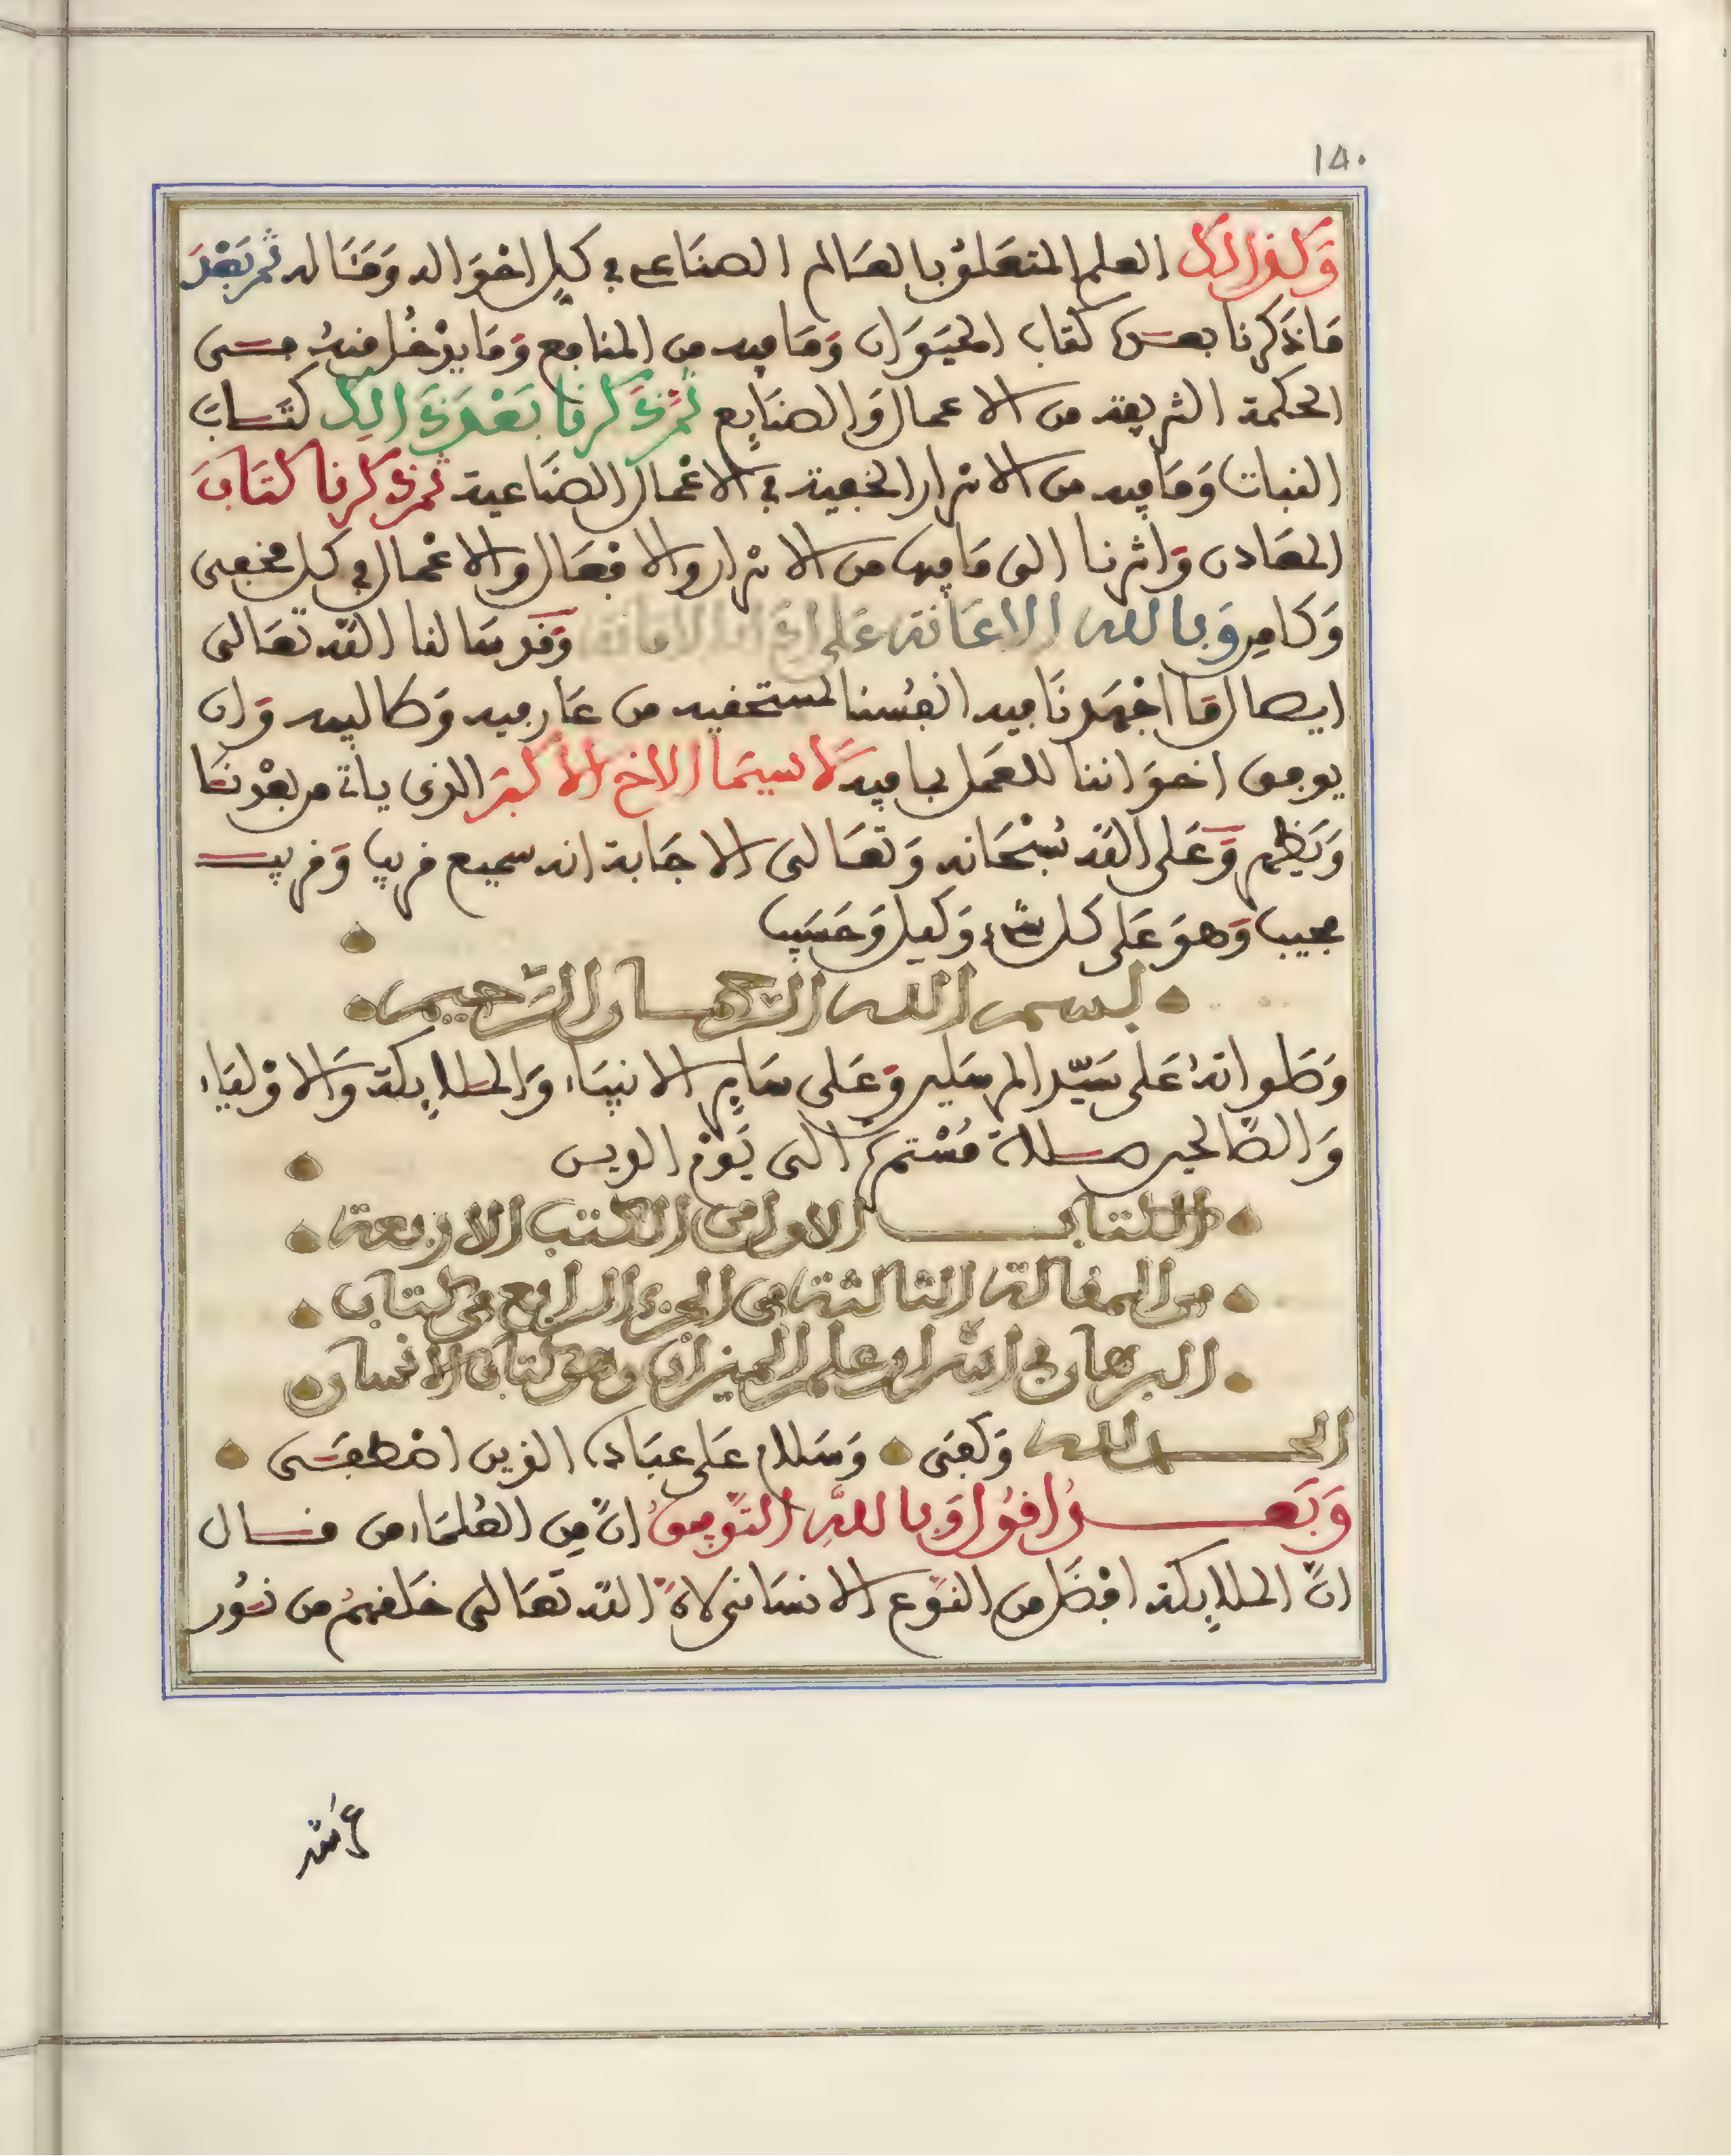 ١٥٠
وَكذالك العلم المتعَلق بالعَالم الصنَاعي في كل احْوَاله وَمَثَاله ثم بَعْدَ
مَا ذَكرنا بعـده كتاب الحيَوَان وَمَا فيه من المنافع وَمَا يدْخُل منهُ فـى
الحكمة الشريفة من الاعمال وَالصنَايع ثمَّ ذَكرنا بَعْدَ ذَالك كتَـابَ
النبات وَمَا فيه من الاسْرار الخفية في الاعْمال الصنَاعية ثم ذكرنا كتَابَ
المعَادن وَاشرنا الى مَا فيها من الاسْرار والافْعَال والاعْمال في كل مخفى
وَكامن وَبالله الاعَانة عَلى ادَاء الامَانة وَقد سَالنا اللّه تعَالى
ايصال مَا اجْهَدنَا فيه انفُسنا لمستحقيه من عَارفيه وَطالبيه وَان
يوفق اخوَاننا للعمَل بما فيه لَا سيمَا الاخ الاكبَر الذى يات من بعْدنَا
وَيَظهر وَعَلى اللّه سُبْحَانه وَتعَالى الاجَابة انه سميع قريب وَقريب
مجيب وَهوَ عَلى كل شَيْء وَكيل وَحَسَيب
بسم الله الرحمـان الرحيم
وَصَلواتهُ عَلى سَيّد المرسَلين وَعَلى سَاير الانبيَاء وَالملايكة وَالاوْليَاء
وَالصَّالحين صـلاة مُسْتمرة الى يَوْم الدين
الكتاب الاول من الكتب الاربعة
من المقالة الثالثة من الجزء الرابع من كتاب
البرهان في اسرار علم الميزان وهو كتاب الانسان
الحـمد لله وَكفَى وَسَلام عَلى عبَاده الذين اصْطفَـى
وَبَعـدُ اقوُل وَبالله التّوفيقُ انَّ مِن العُلمَاء من قـال
انَّ الملايكة افْضَل من النّوع الانسَانى لانَّ اللّه تعَالى خلقهمُ من نـُور